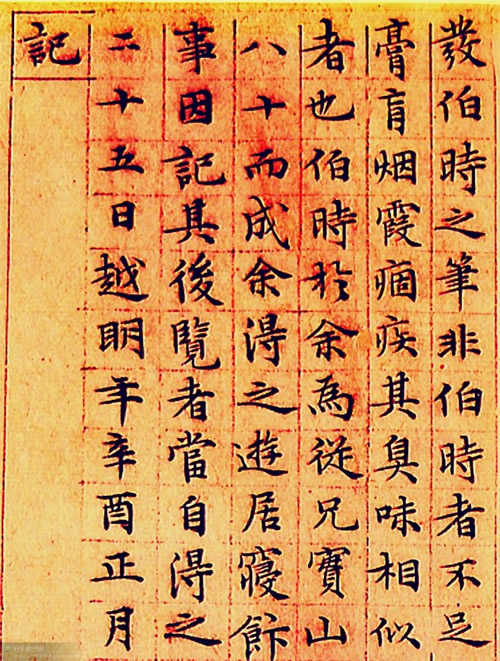 發伯時之筆非伯時者不足
膏肓烟霞痼疾其臭味相似
者也伯時扵余為從兄寶山
八十而成余得之遊居寢飰
事因記其後覽者當自得之
二十五日越明年辛酉正月
記